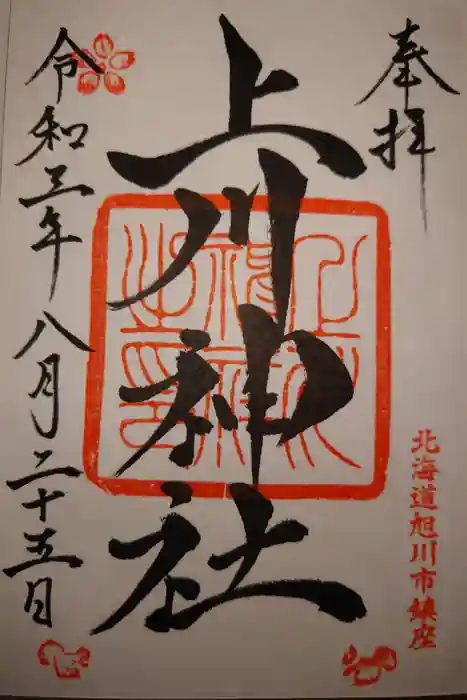 奉拝
北海道旭川市鎮座
上川神社
上川神社之印
令和三年八月二十五日